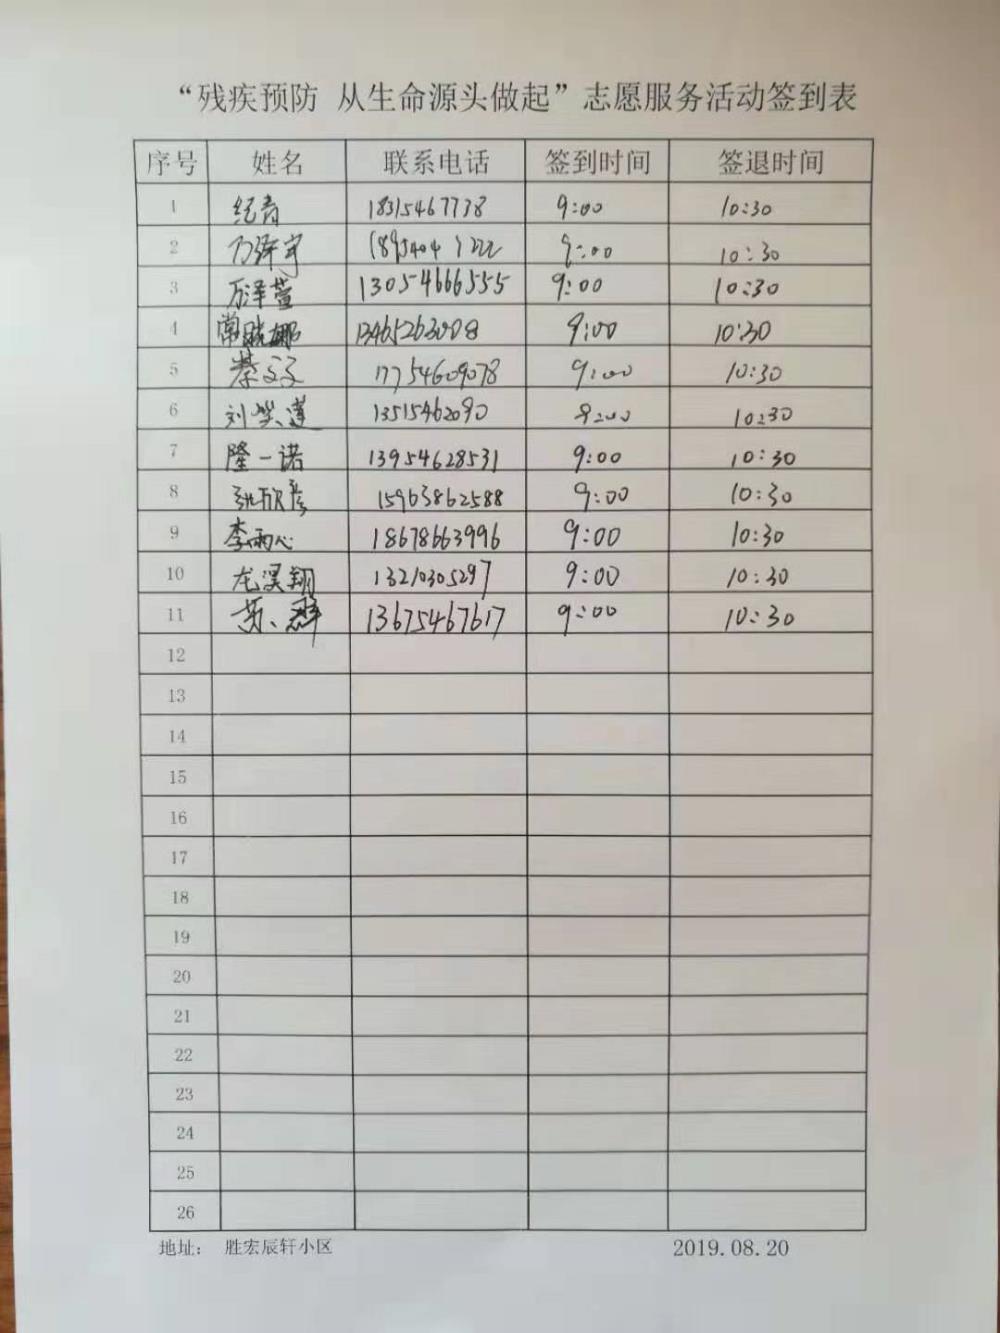 “残疾预防 从生命源头做起”志愿服务活动签到表
序号 姓名 联系电话 签到时间 签退时间
1 纪青 18315467738 9:00 10:30
2 万泽宇 9:00 10:30
3 万泽萱 13054666555 9:00 10:30
4 常晓娜 13465263008 9:00 10:30
5 17754609078 9:00 10:30
6 刘笑莲 13515462090 9:00 10:30
7 隆一诺 13954628531 9:00 10:30
8 张欣彦 15963862588 9:00 10:30
9 李雨心 18678663996 9:00 10:30
10 龙淏翔 13210305297 9:00 10:30
11 13675467617 9:00 10:30
12
13
14
15
16
17
18
19
20
21
22
23
24
25
26
地址： 胜宏辰轩小区 2019.08.20